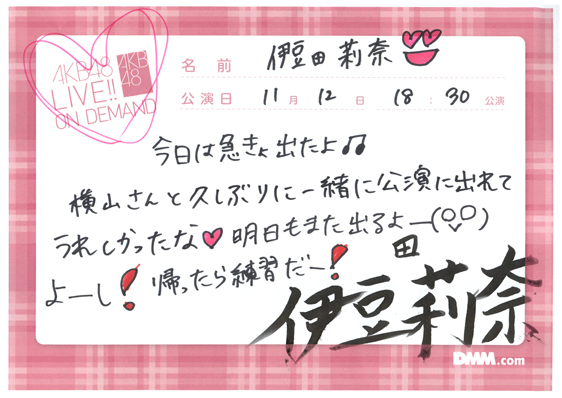 AKB48
LIVE!!
ON DEMAND
AKB
48
名前 伊豆田莉奈
公演日 11月12日 18:30公演
今日は急きょ出たよ♫
横山さんと久しぶりに一緒に公演に出れて
うれしかったな♥明日もまた出るよー(^o^)
よーし!帰ったら練習だー!
伊豆田莉奈
DMM.com